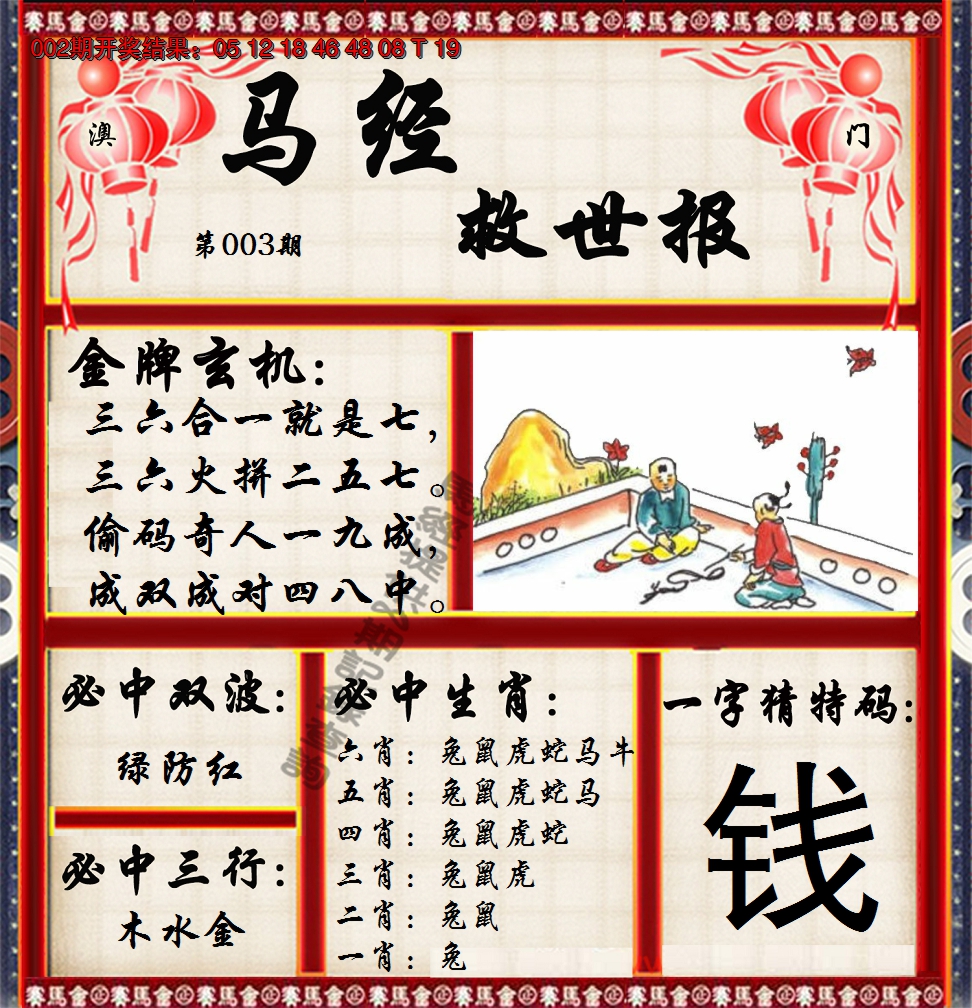 002期开奖结果：05 12 18 46 48 08 T 19
澳
门
马经
救世报
第003期
金牌玄机：
三六合一就是七，
三六火拼二五七。
偷码奇人一九成，
成双成对四八中。
必中双波：
绿防红
必中三行：
木水金
必中生肖：
六肖：兔鼠虎蛇马牛
五肖：兔鼠虎蛇马
四肖：兔鼠虎蛇
三肖：兔鼠虎
二肖：兔鼠
一肖：兔
一字猜特码：
钱